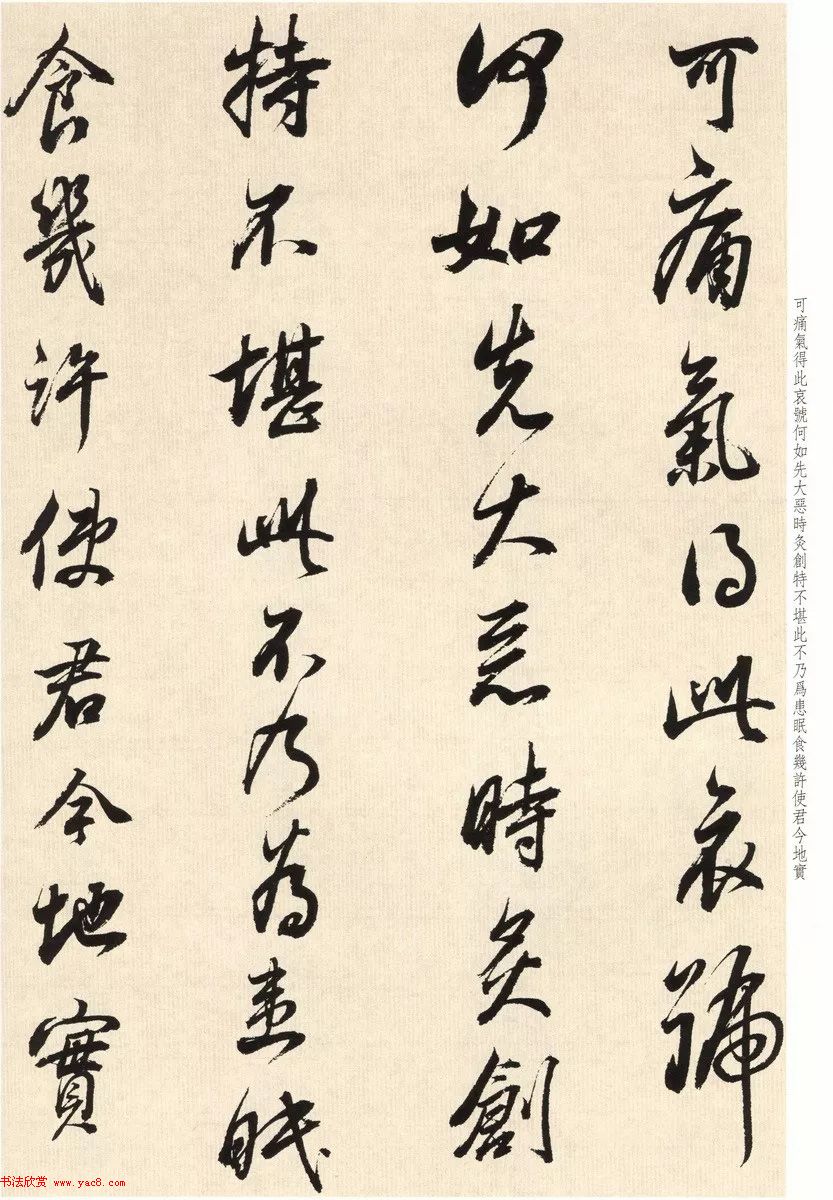 可痛氣得此哀號
何如先大惡時灸創
特不堪此不乃爲患眠
食幾許使君今地實
可痛氣得此哀號何如先大惡時灸創特不堪此不乃爲患眠食幾許使君今地實
书法欣赏 www.yac8.com